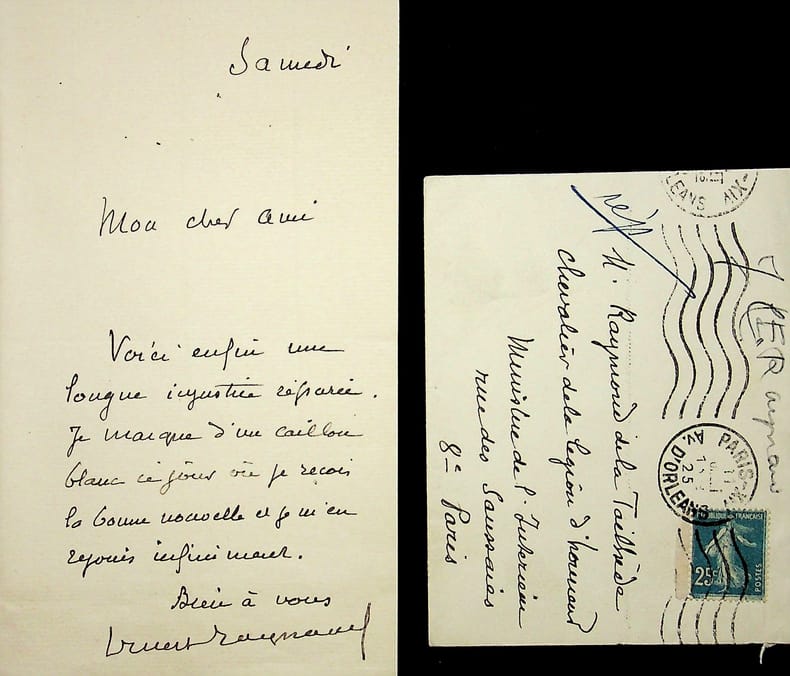 Samedi
Mon cher ami
Voici enfin une
longue injustice réparée.
Je marque d'un caillou
blanc ce jour où je reçois
la bonne nouvelle et je m'en
réjouis infiniment.
Bien à vous
Ernest Raynaud
rép
M. Raymond de la Tailhède
chevalier de la Légion d'honneur
Ministère de l'Intérieur
rue des Saussaies
8e Paris
E. Raynaud
ORLEANS XIV
PARIS-XIV
AV. D'ORLEANS
25
RÉPUBLIQUE FRANÇAISE
25c
POSTES